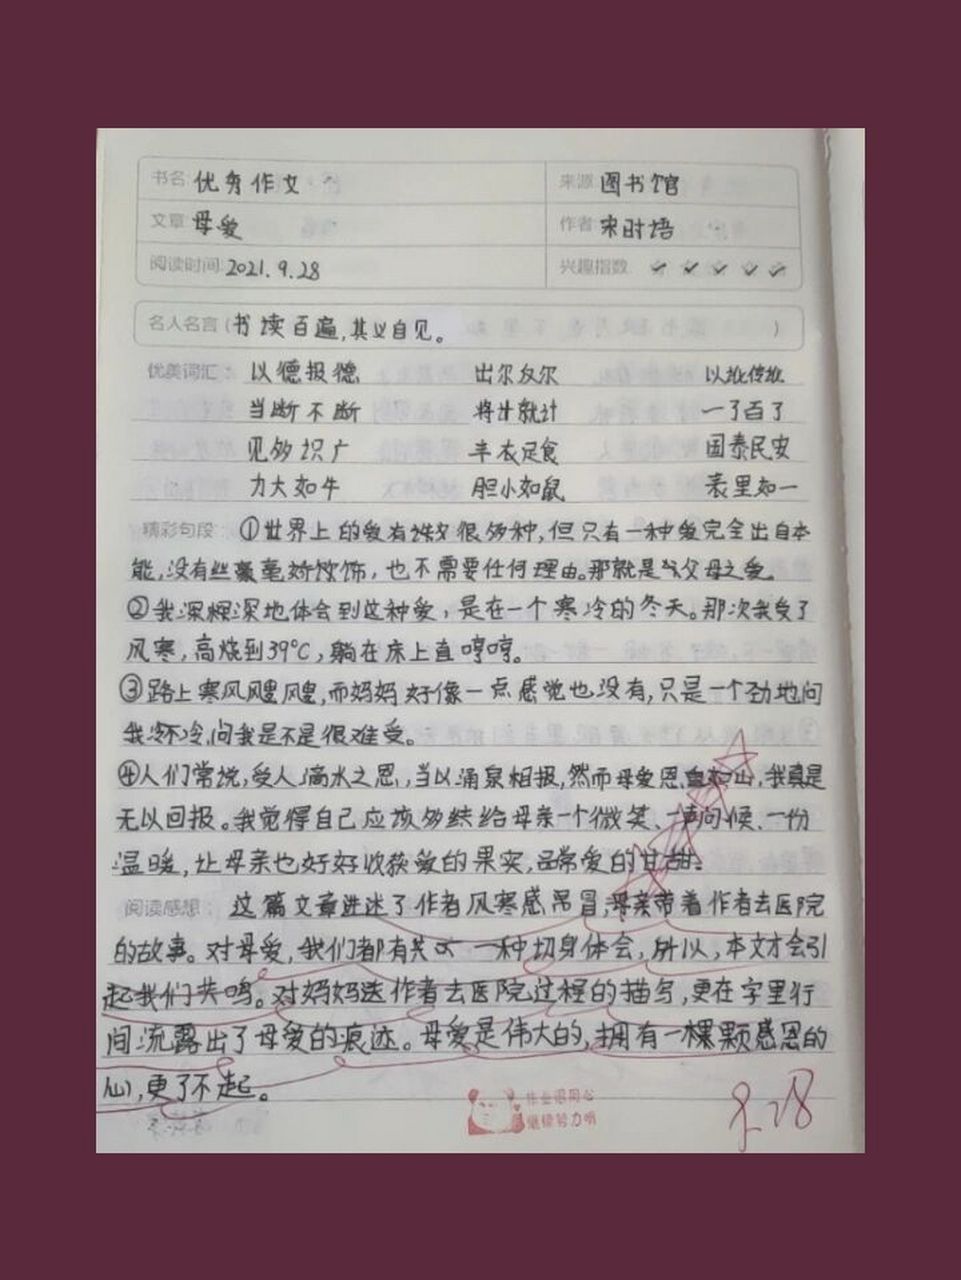 书名: 优秀作文 来源: 图书馆
文章: 母爱 作者: 宋时培
阅读时间: 2021.9.28 兴趣指数:
名人名言(书读百遍,其义自见。)
优美词汇: 以德报德 出尔反尔 以讹传讹
当断不断 将计就计 一了百了
见多识广 丰衣足食 国泰民安
力大如牛 胆小如鼠 表里如一
精彩句段: ①世界上的爱有很多种,但只有一种爱完全出自本
能,没有丝毫矫饰,也不需要任何理由。那就是父母之爱。
②我深深地体会到这种爱,是在一个寒冷的冬天。那次我受了
风寒,高烧到39°C,躺在床上直哼哼。
③路上寒风飕飕,而妈妈好像一点感觉也没有,只是一个劲地问
我冷不冷,问我是不是很难受。
④人们常说,受人滴水之恩,当以涌泉相报,然而母爱恩重如山,我真是
无以回报。我觉得自己应该多给母亲一个微笑、一声问候、一份
温暖,让母亲也好好收获爱的果实,品尝爱的甘甜。
阅读感想: 这篇文章讲述了作者风寒感冒,母亲带着作者去医院
的故事。对母爱,我们都有一种切身体会,所以,本文才会引
起我们共鸣。对妈妈送作者去医院过程的描写,更在字里行
间流露出了母爱的痕迹。母爱是伟大的,拥有一颗感恩的
心,更了不起。
作业很用心
继续努力哟
9.28